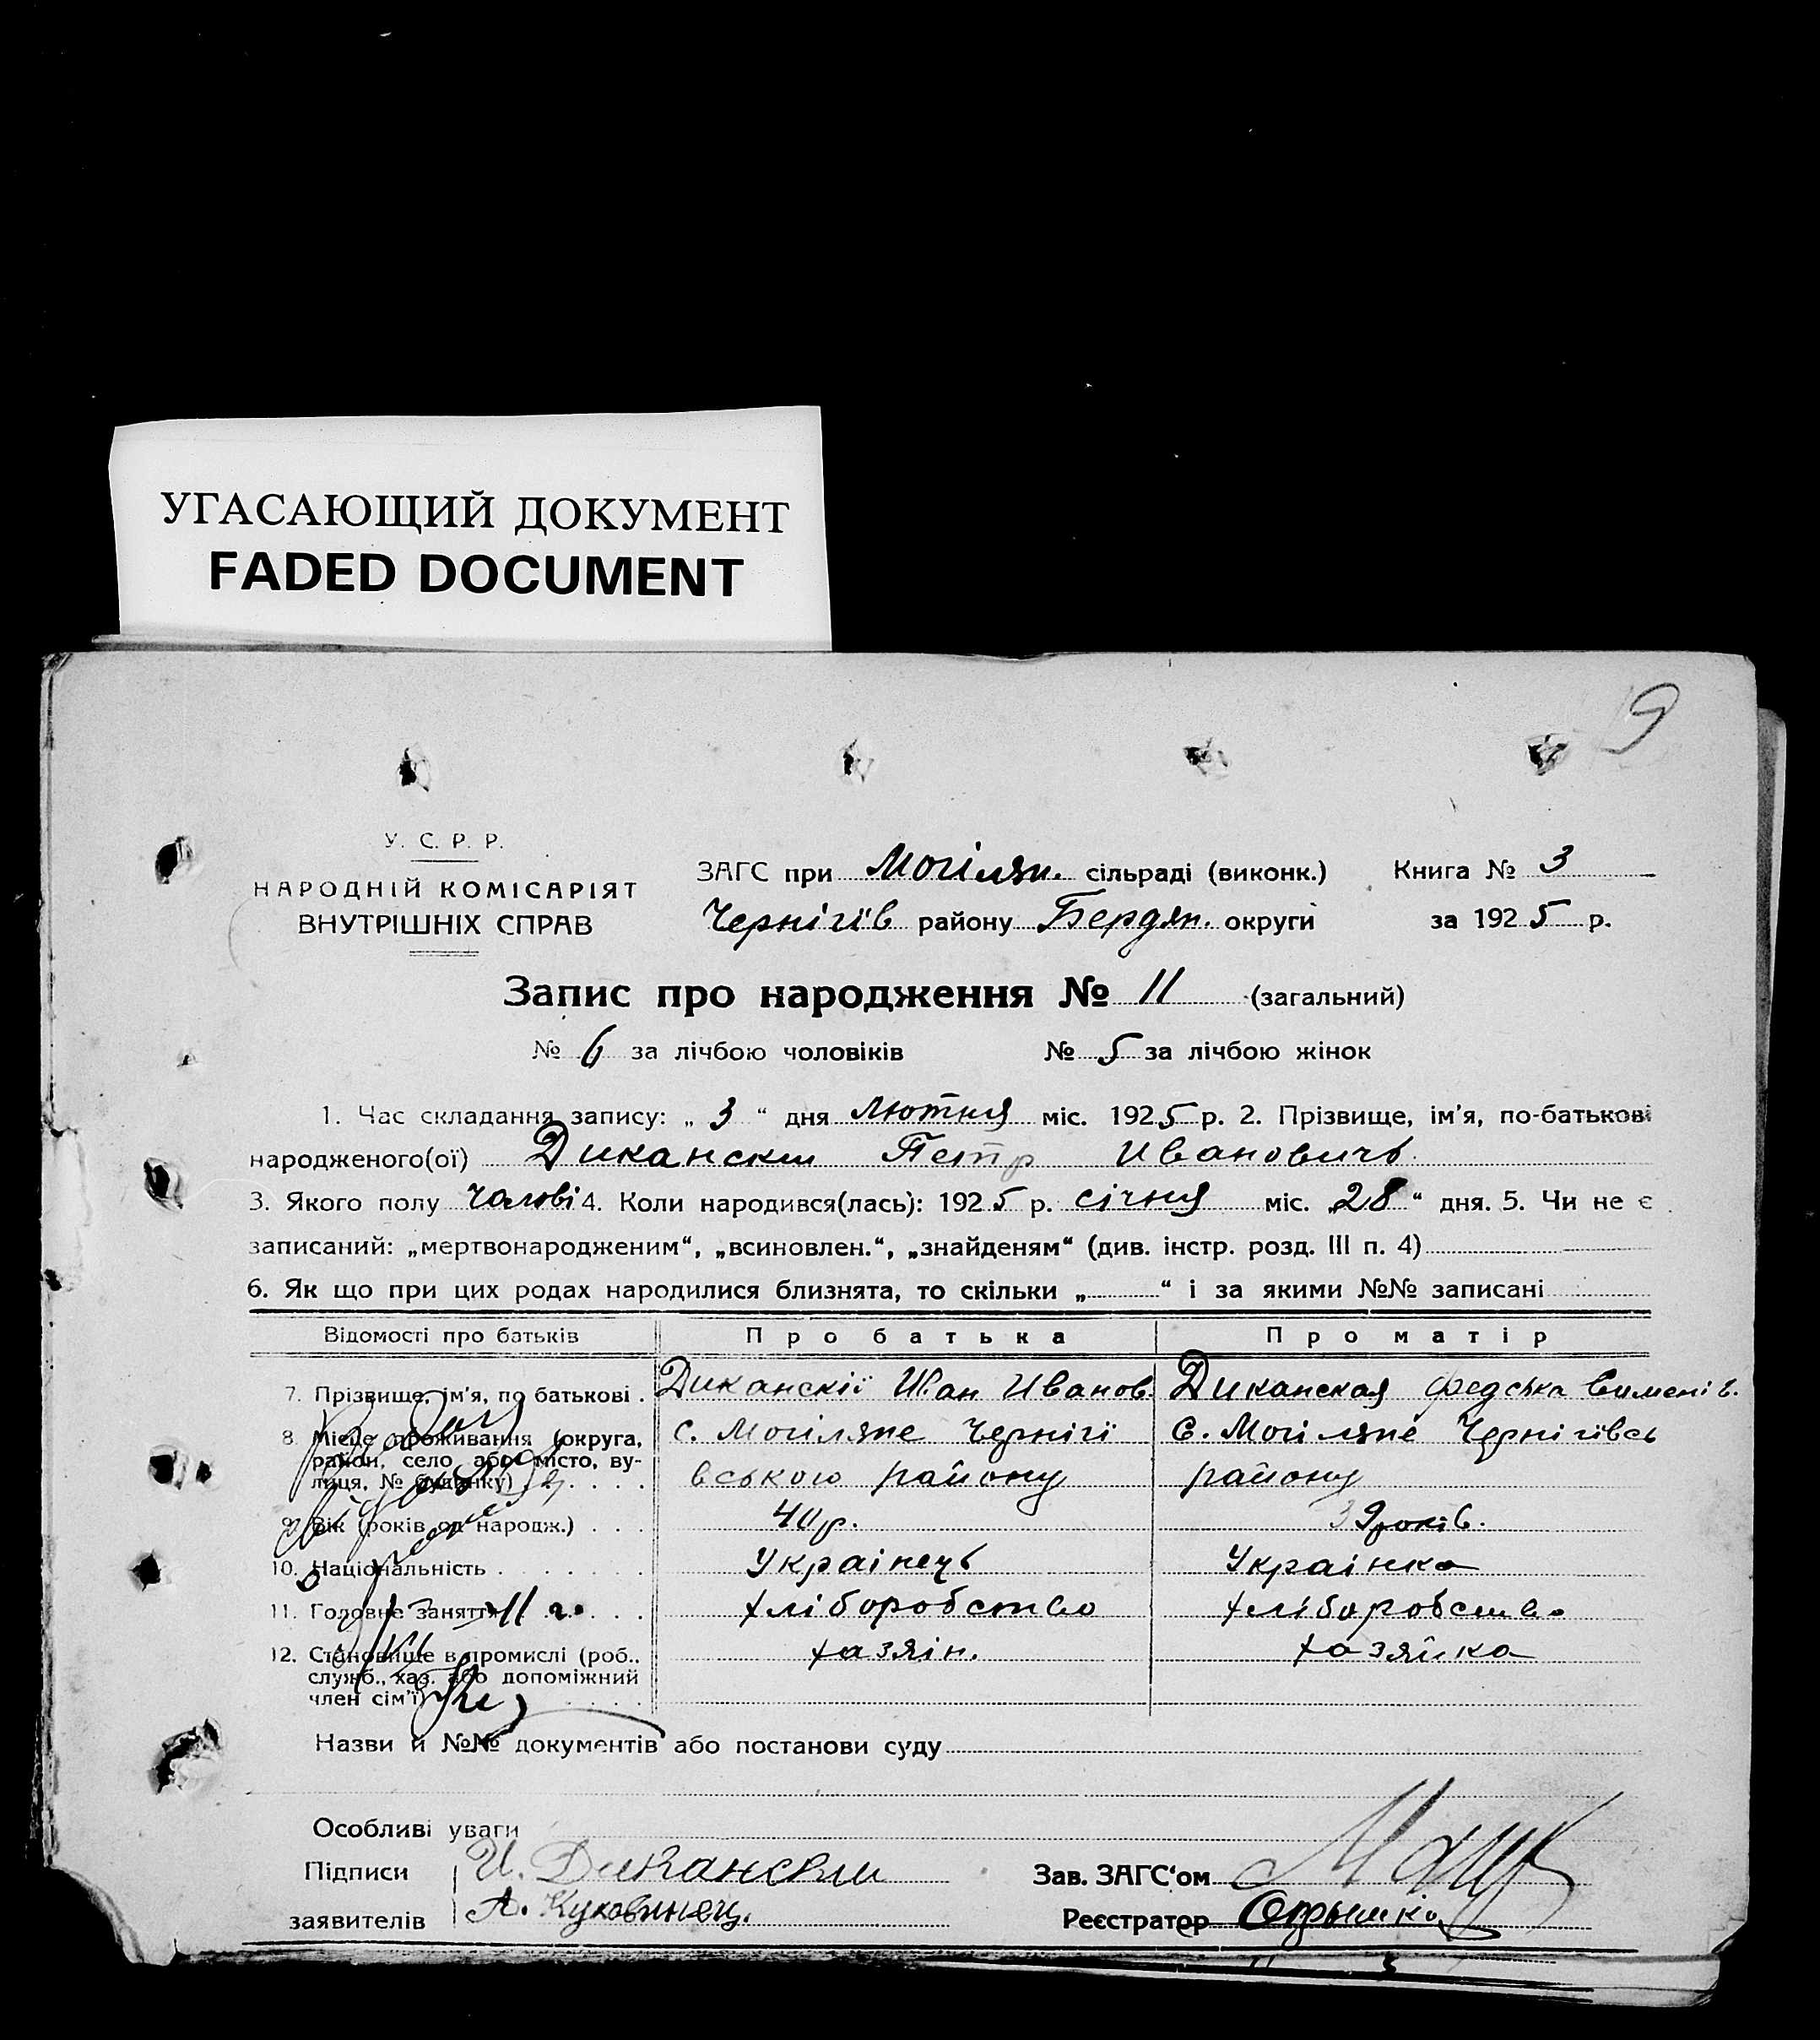 УГАСАЮЩИЙ ДОКУМЕНТ
FADED DOCUMENT
9
У. С. Р. Р.
НАРОДНІЙ КОМІСАРІЯТ
ВНУТРІШНІХ СПРАВ
ЗАГС при Могілян. сільраді (виконк.) Книга № 3
Чернігів району Бердян. округи за 1925 р.
Запис про народження № 11 (загальний)
№ 6 за лічбою чоловіків № 5 за лічбою жінок
1. Час складання запису: „3“ дня Лютня міс. 1925 р. 2. Прізвище, ім'я, по-батькові
народженого(ої) Диканский Петр Ивановичь
3. Якого полу чолові 4. Коли народився(лась): 1925 р. січня міс. „28“ дня. 5. Чи не є
записаний: „мертвонародженим“, „всиновлен.“, „знайденям“ (див. інстр. розд. III п. 4)
6. Як що при цих родах народилися близнята, то скільки „ “ і за якими №№ записані
Відомості про батьків Про батька Про матір
7. Прізвище, ім'я, по батькові . Диканскій Иван Иванов. Диканская
8. Місце проживання (округа, с. Могіляне Чернігі с. Могіляне Чернігівсь
район, село, або місто, ву-
лиця, № будинку) . . . . вського району району
9. Вік (років од народж.) . . . 40 р. 39 років.
10. Національність . . . . . . . Украінець Украінка
11. Головне заняття . . . . . хліборобство хліборобство
12. Становище в промислі (роб., хазяін. хазяйка
служб., хаз. або допоміжний
член сім'ї) . . . .
Назви й №№ документів або постанови суду
Особливі уваги
Підписи И. Диканский Зав. ЗАГС'ом
заявителів А. Куковинец. Реєстратор